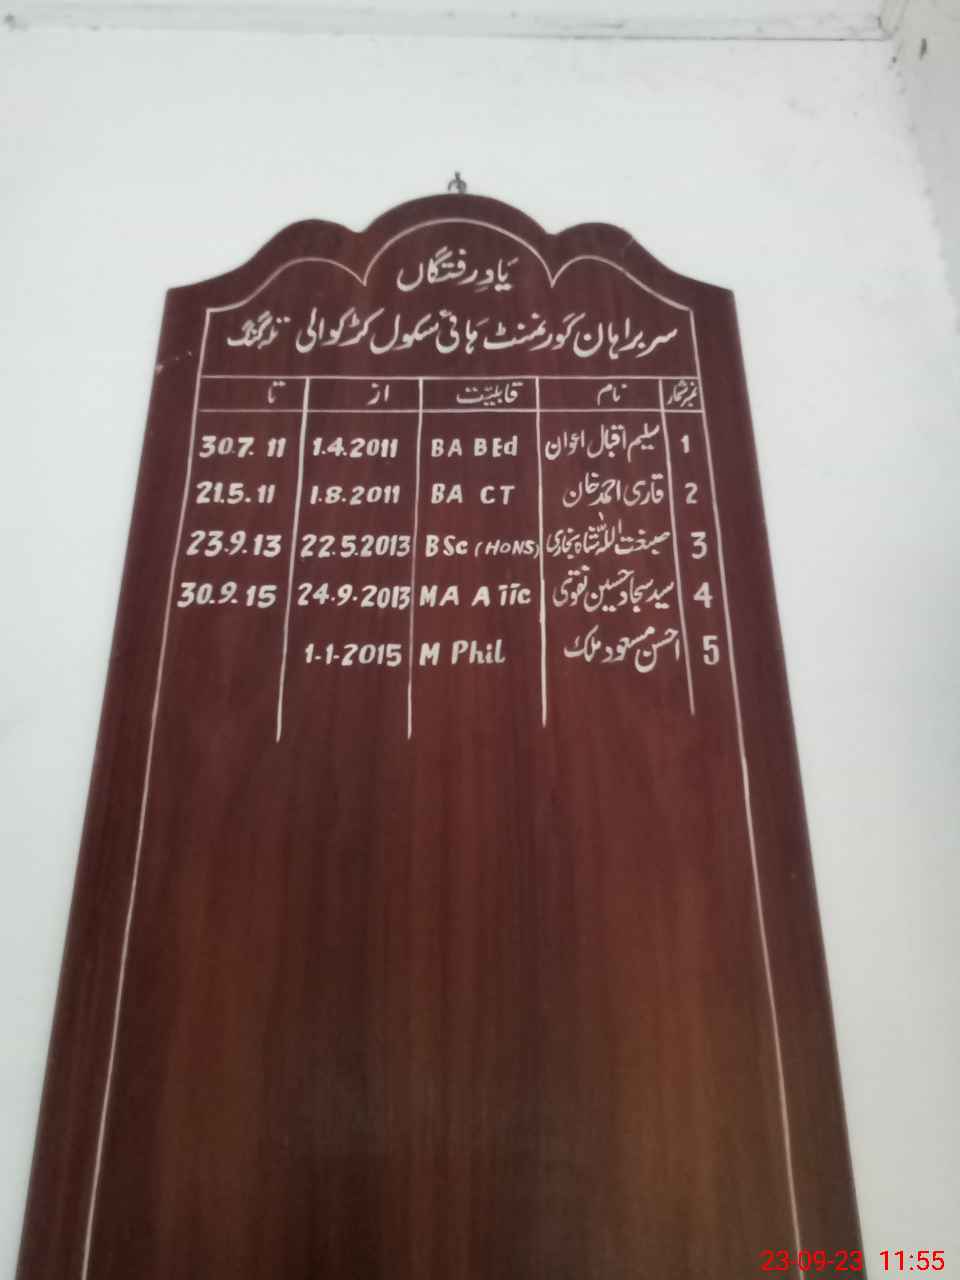 یادِ رفتگاں
سربراہان گورنمنٹ ہائی سکول کڑکوالی تلہ گنگ
نمبرشمار نام قابلیّت از تا
1 سلیم اقبال اعوان BA BEd 1.4.2011 30.7.11
2 قاری احمد خان BA CT 1.8.2011 21.5.11
3 صبغت اللہ شاہ بخاری BSc (HONS) 22.5.2013 23.9.13
4 سید سجاد حسین نقوی MA A iic 24.9.2013 30.9.15
5 احسن مسعود ملک M Phil 1-1-2015
23-09-23 11:55